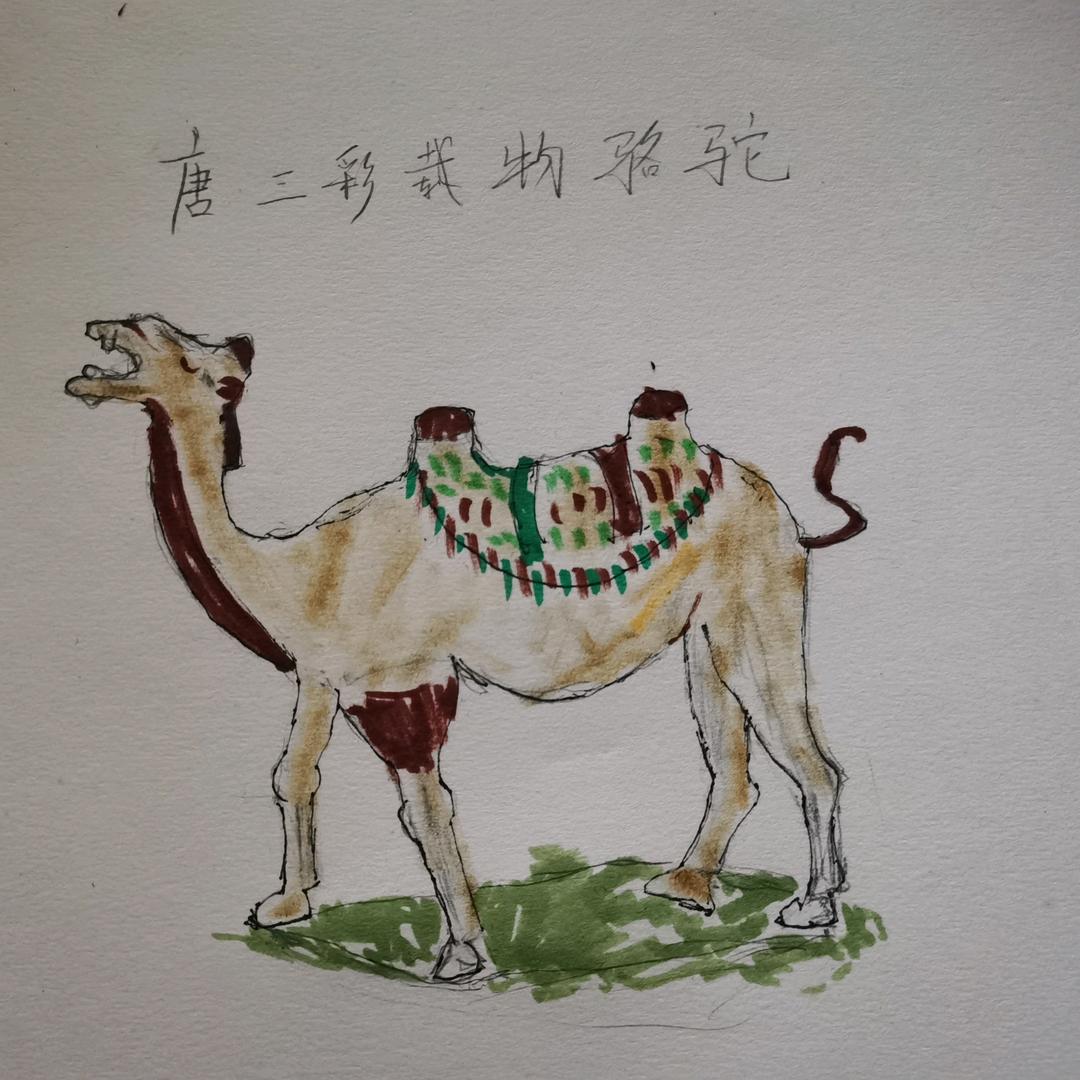 唐三彩载物骆驼